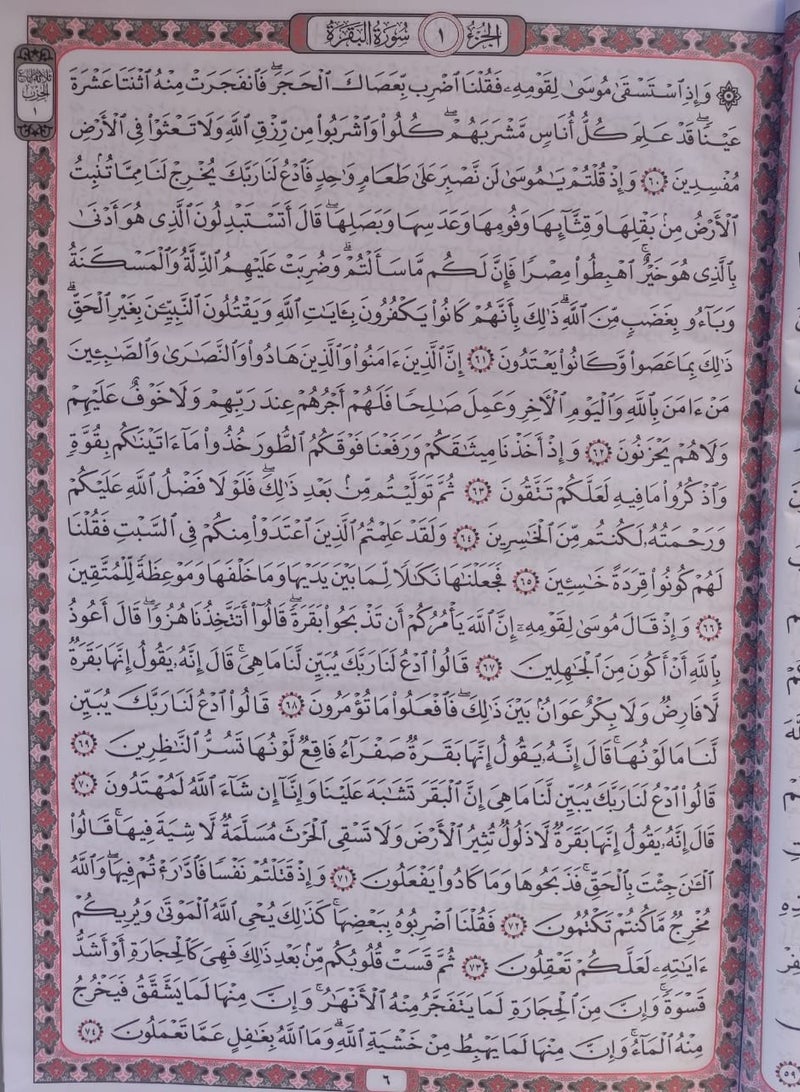 الجزء ١ سورة البقرة
ثلاثة أرباع
الحزب
١
۞ وَإِذِ ٱسۡتَسۡقَىٰ مُوسَىٰ لِقَوۡمِهِۦ فَقُلۡنَا ٱضۡرِب بِّعَصَاكَ ٱلۡحَجَرَۖ فَٱنفَجَرَتۡ مِنۡهُ ٱثۡنَتَا عَشۡرَةَ
عَيۡنٗاۖ قَدۡ عَلِمَ كُلُّ أُنَاسٖ مَّشۡرَبَهُمۡۖ كُلُواْ وَٱشۡرَبُواْ مِن رِّزۡقِ ٱللَّهِ وَلَا تَعۡثَوۡاْ فِي ٱلۡأَرۡضِ
مُفۡسِدِينَ ٦٠ وَإِذۡ قُلۡتُمۡ يَٰمُوسَىٰ لَن نَّصۡبِرَ عَلَىٰ طَعَامٖ وَٰحِدٖ فَٱدۡعُ لَنَا رَبَّكَ يُخۡرِجۡ لَنَا مِمَّا تُنۢبِتُ
ٱلۡأَرۡضُ مِنۢ بَقۡلِهَا وَقِثَّآئِهَا وَفُومِهَا وَعَدَسِهَا وَبَصَلِهَاۖ قَالَ أَتَسۡتَبۡدِلُونَ ٱلَّذِي هُوَ أَدۡنَىٰ
بِٱلَّذِي هُوَ خَيۡرٌۚ ٱهۡبِطُواْ مِصۡرٗا فَإِنَّ لَكُم مَّا سَأَلۡتُمۡۗ وَضُرِبَتۡ عَلَيۡهِمُ ٱلذِّلَّةُ وَٱلۡمَسۡكَنَةُ
وَبَآءُو بِغَضَبٖ مِّنَ ٱللَّهِۗ ذَٰلِكَ بِأَنَّهُمۡ كَانُواْ يَكۡفُرُونَ بِـَٔايَٰتِ ٱللَّهِ وَيَقۡتُلُونَ ٱلنَّبِيِّـۧنَ بِغَيۡرِ ٱلۡحَقِّۗ
ذَٰلِكَ بِمَا عَصَواْ وَّكَانُواْ يَعۡتَدُونَ ٦١ إِنَّ ٱلَّذِينَ ءَامَنُواْ وَٱلَّذِينَ هَادُواْ وَٱلنَّصَٰرَىٰ وَٱلصَّٰبِـِٔينَ
مَنۡ ءَامَنَ بِٱللَّهِ وَٱلۡيَوۡمِ ٱلۡأٓخِرِ وَعَمِلَ صَٰلِحٗا فَلَهُمۡ أَجۡرُهُمۡ عِندَ رَبِّهِمۡ وَلَا خَوۡفٌ عَلَيۡهِمۡ
وَلَا هُمۡ يَحۡزَنُونَ ٦٢ وَإِذۡ أَخَذۡنَا مِيثَٰقَكُمۡ وَرَفَعۡنَا فَوۡقَكُمُ ٱلطُّورَ خُذُواْ مَآ ءَاتَيۡنَٰكُم بِقُوَّةٖ
وَٱذۡكُرُواْ مَا فِيهِ لَعَلَّكُمۡ تَتَّقُونَ ٦٣ ثُمَّ تَوَلَّيۡتُم مِّنۢ بَعۡدِ ذَٰلِكَۖ فَلَوۡلَا فَضۡلُ ٱللَّهِ عَلَيۡكُمۡ
وَرَحۡمَتُهُۥ لَكُنتُم مِّنَ ٱلۡخَٰسِرِينَ ٦٤ وَلَقَدۡ عَلِمۡتُمُ ٱلَّذِينَ ٱعۡتَدَوۡاْ مِنكُمۡ فِي ٱلسَّبۡتِ فَقُلۡنَا
لَهُمۡ كُونُواْ قِرَدَةً خَٰسِـِٔينَ ٦٥ فَجَعَلۡنَٰهَا نَكَٰلٗا لِّمَا بَيۡنَ يَدَيۡهَا وَمَا خَلۡفَهَا وَمَوۡعِظَةٗ لِّلۡمُتَّقِينَ
٦٦ وَإِذۡ قَالَ مُوسَىٰ لِقَوۡمِهِۦٓ إِنَّ ٱللَّهَ يَأۡمُرُكُمۡ أَن تَذۡبَحُواْ بَقَرَةٗۖ قَالُوٓاْ أَتَتَّخِذُنَا هُزُوٗاۖ قَالَ أَعُوذُ
بِٱللَّهِ أَنۡ أَكُونَ مِنَ ٱلۡجَٰهِلِينَ ٦٧ قَالُواْ ٱدۡعُ لَنَا رَبَّكَ يُبَيِّن لَّنَا مَا هِيَۚ قَالَ إِنَّهُۥ يَقُولُ إِنَّهَا بَقَرَةٞ
لَّا فَارِضٞ وَلَا بِكۡرٌ عَوَانُۢ بَيۡنَ ذَٰلِكَۖ فَٱفۡعَلُواْ مَا تُؤۡمَرُونَ ٦٨ قَالُواْ ٱدۡعُ لَنَا رَبَّكَ يُبَيِّن
لَّنَا مَا لَوۡنُهَاۚ قَالَ إِنَّهُۥ يَقُولُ إِنَّهَا بَقَرَةٞ صَفۡرَآءُ فَاقِعٞ لَّوۡنُهَا تَسُرُّ ٱلنَّٰظِرِينَ ٦٩
قَالُواْ ٱدۡعُ لَنَا رَبَّكَ يُبَيِّن لَّنَا مَا هِيَ إِنَّ ٱلۡبَقَرَ تَشَٰبَهَ عَلَيۡنَا وَإِنَّآ إِن شَآءَ ٱللَّهُ لَمُهۡتَدُونَ ٧٠
قَالَ إِنَّهُۥ يَقُولُ إِنَّهَا بَقَرَةٞ لَّا ذَلُولٞ تُثِيرُ ٱلۡأَرۡضَ وَلَا تَسۡقِي ٱلۡحَرۡثَ مُسَلَّمَةٞ لَّا شِيَةَ فِيهَاۚ قَالُواْ
ٱلۡـَٰٔنَ جِئۡتَ بِٱلۡحَقِّۚ فَذَبَحُوهَا وَمَا كَادُواْ يَفۡعَلُونَ ٧١ وَإِذۡ قَتَلۡتُمۡ نَفۡسٗا فَٱدَّٰرَٰٔتُمۡ فِيهَاۖ وَٱللَّهُ
مُخۡرِجٞ مَّا كُنتُمۡ تَكۡتُمُونَ ٧٢ فَقُلۡنَا ٱضۡرِبُوهُ بِبَعۡضِهَاۚ كَذَٰلِكَ يُحۡيِ ٱللَّهُ ٱلۡمَوۡتَىٰ وَيُرِيكُمۡ
ءَايَٰتِهِۦ لَعَلَّكُمۡ تَعۡقِلُونَ ٧٣ ثُمَّ قَسَتۡ قُلُوبُكُم مِّنۢ بَعۡدِ ذَٰلِكَ فَهِيَ كَٱلۡحِجَارَةِ أَوۡ أَشَدُّ
قَسۡوَةٗۚ وَإِنَّ مِنَ ٱلۡحِجَارَةِ لَمَا يَتَفَجَّرُ مِنۡهُ ٱلۡأَنۡهَٰرُۚ وَإِنَّ مِنۡهَا لَمَا يَشَّقَّقُ فَيَخۡرُجُ
مِنۡهُ ٱلۡمَآءُۚ وَإِنَّ مِنۡهَا لَمَا يَهۡبِطُ مِنۡ خَشۡيَةِ ٱللَّهِۗ وَمَا ٱللَّهُ بِغَٰفِلٍ عَمَّا تَعۡمَلُونَ ٧٤
٦
٥٩